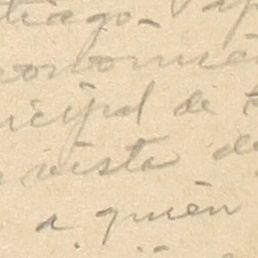 tiago_
conomie
nicipal de
vista de
a quién